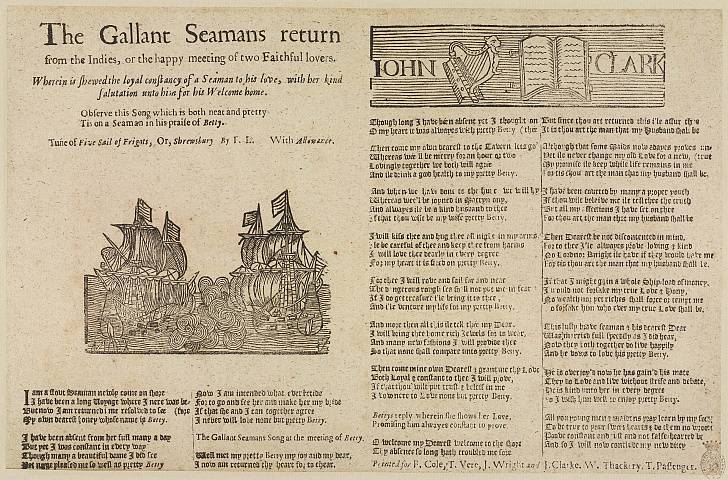 The Gallant Seamans return
from the Indies, or the happy meeting of two Faithful lovers.
Wherein is shewed the loyal constancy of a Seaman to his love, with her kind
salutation unto him for his Welcome home.
Observe this Song which is both neat and pretty
Tis on a Seaman in his praise of Betty.
Tune of Five Sail of Frigots, Or, Shrewsbury By T. L. With Allowance.
I am a stout Seaman newly come on shore
I have been a long Voyage where I nere was be-
But now I am returned ime resolved to see (fore
My own dearest honey whose name is Betty.
I have been absent from her full many a day
But yet I was constant in every way
Though many a beautiful dame I did see
Yet none pleased me so well as pretty Betty
Now I am intended what ever betide
For to go and see her and make her my bride
If that she and I can together agree
I never will love none but pretty Betty.
The Gallant Seamans Song at the meeting of Betty.
Well met my pretty Betty my joy and my dear,
I now am returned thy heart for to chear.
IOHN CLARK
Though long I have bin absent yet I thought on
O my heart it was alwayes with pretty Betty (thee
Then come my own dearest to the Tavern lets go
Whereas we'll be merry for an hour or two
Lovingly together we both will agree
And ile drink a good health to my pretty Betty.
And when we have done to the we will hy
Whereas we'l be joyned in Matrimony,
And alwayes ile be a kind husband to thee
If that thou wilt be my wife pretty Betty.
I will kiss thee and hug thee all night in my arms
Ile be careful of thee and keep thee from harms
I will love thee dearly in every degree
For my heart it is fixed on pretty Betty.
For thee I will rove and sail far and near
The dangerous rough seas shall not put me in fear
If I do get treasure ile bring it to thee,
And ile venture my life for my pretty Betty.
And more then all ile tell thee my Dear.
I will bring thee home rich Jewels for to wear,
And many new fashions I will provide thee
So that none shall compare unto pretty Betty.
Then come mine own Dearest & grant me thy Love
Both loyal & constant to thee I will prove,
If that thou wilt put trust & beleif in me
I vow nere to Love none but pretty Betty.
Bettys reply wherein she shows her Love,
Promising him alwayes constant to prove.
O welcome my Dearest welcome to the shore
Thy absence so long hath troubled me sore
But since thou art returned this ile assure thee
It is thou art the man that my Husband shall be
Although that some Maids now adayes prove un-
Yet ile never change my old Love for a new, (true
My promise ile keep while life remains in me
For tis thou art the man that my husband shall be.
I have been courted by many a proper youth
If thou wilt beleive me ile tell thee the truth
But all my affections I have set on thee
For thou art the man that my husband shall be
Then Dearest be not discontented in mind,
For to thee I'le alwayes prove loving & kind
No Lord nor Knight ile have if they would have me
For tis thou art the man that my husband shall be.
If that I might gain a whole Ship load of money,
I would not forsake my true Love & Hony,
No wealth nor yet riches shall force or tempt me
To forsake him who ever my true Love shall be.
This lusty brave seaman & his dearest Dear
Was married full speedily as I did hear,
Now they both together do live happily
And he vows to love his pretty Betty.
He is overjoy'd now he has gain'd his mate
They do Love and live without strife and debate,
He is kind unto her in every degree
So I wish him well to enjoy pretty Betty.
All you young men & maidens pray learn by my song
To be true to your sweet hearts & do them no wrong
Prove constant and just and not false-hearted be
And so I will now conclude my new ditty
Printed for P. Cole, T. Vere, J. Wright and J. Clarke. W. Thackery, T. Passenger.